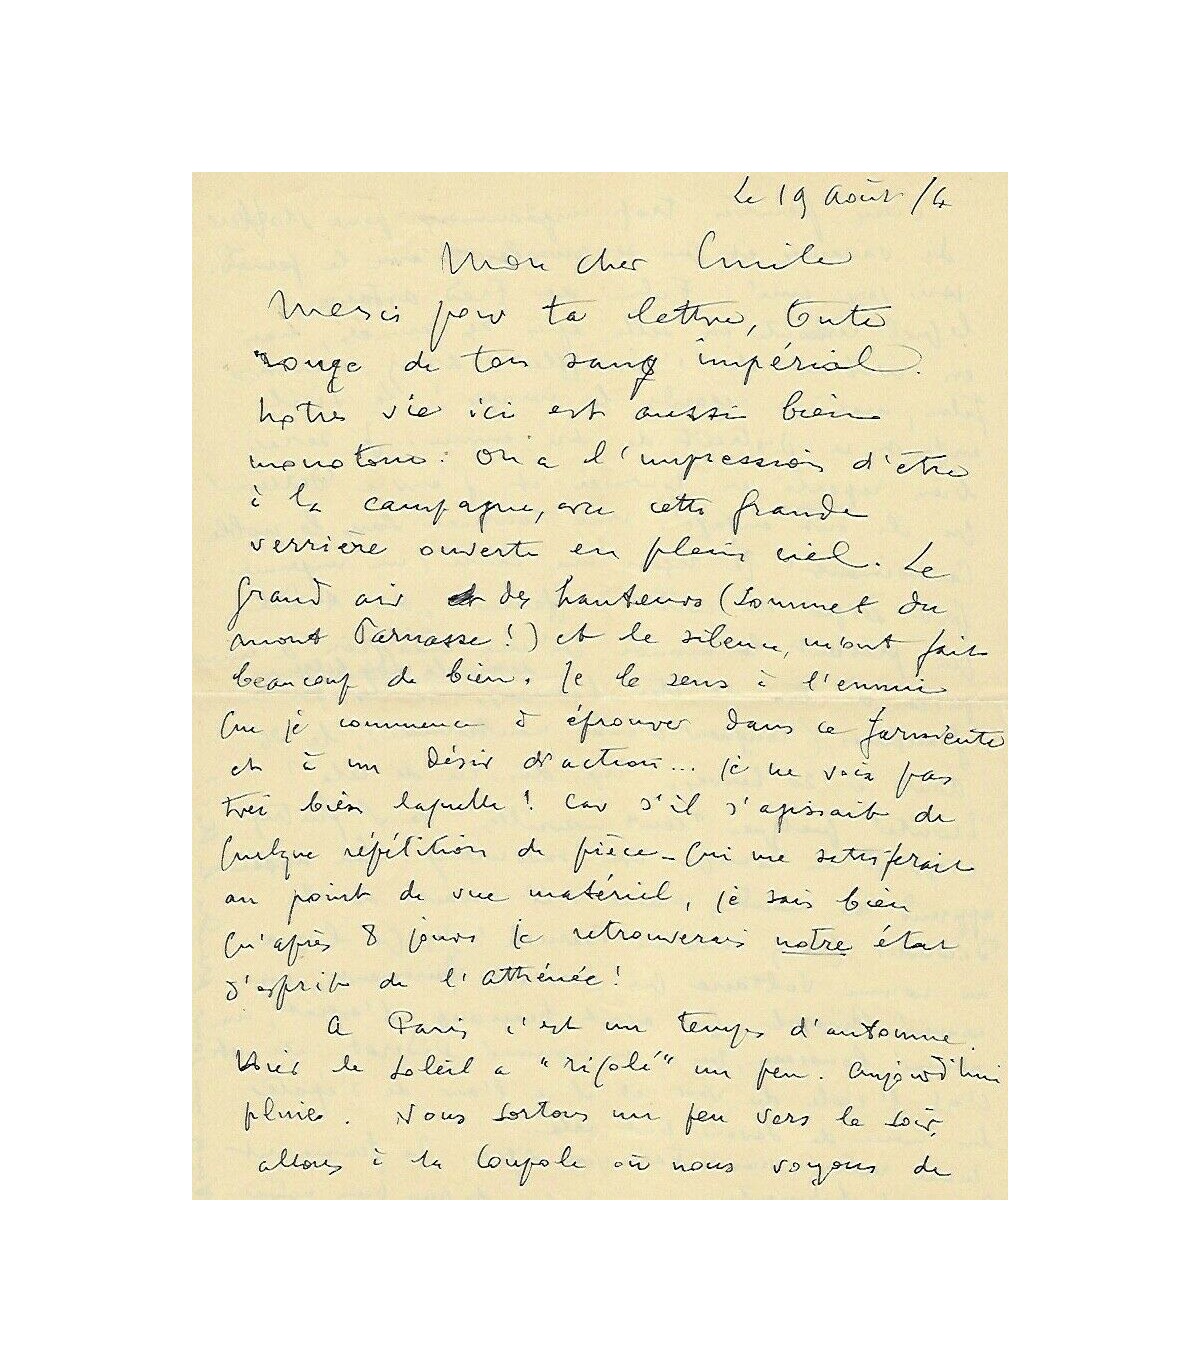 Le 19 Août /4
Mon cher Emile
Merci pour ta lettre, toute
rouge de ton sang impérial.
Notre vie ici est aussi bien
monotone : on a l'impression d'être
à la campagne, avec cette grande
verrière ouverte en plein ciel. Le
grand air des hauteurs (Sommet du
mont Parnasse !) et le silence, m'ont fait
beaucoup de bien. Je le sens à l'ennui
que je commence à éprouver dans ce farniente
et à un désir d'action... je ne vois pas
très bien laquelle ! Car s'il s'agissait de
quelque répétition de pièce - qui me satisferait
au point de vue matériel, je sais bien
qu'après 8 jours je retrouverais notre état
d'esprit de l'Athénée !
A Paris c'est un temps d'automne.
Hier le soleil a "rigolé" un peu. Aujourd'hui
pluie. Nous sortons un peu vers le soir,
allons à la Coupole où nous voyons de